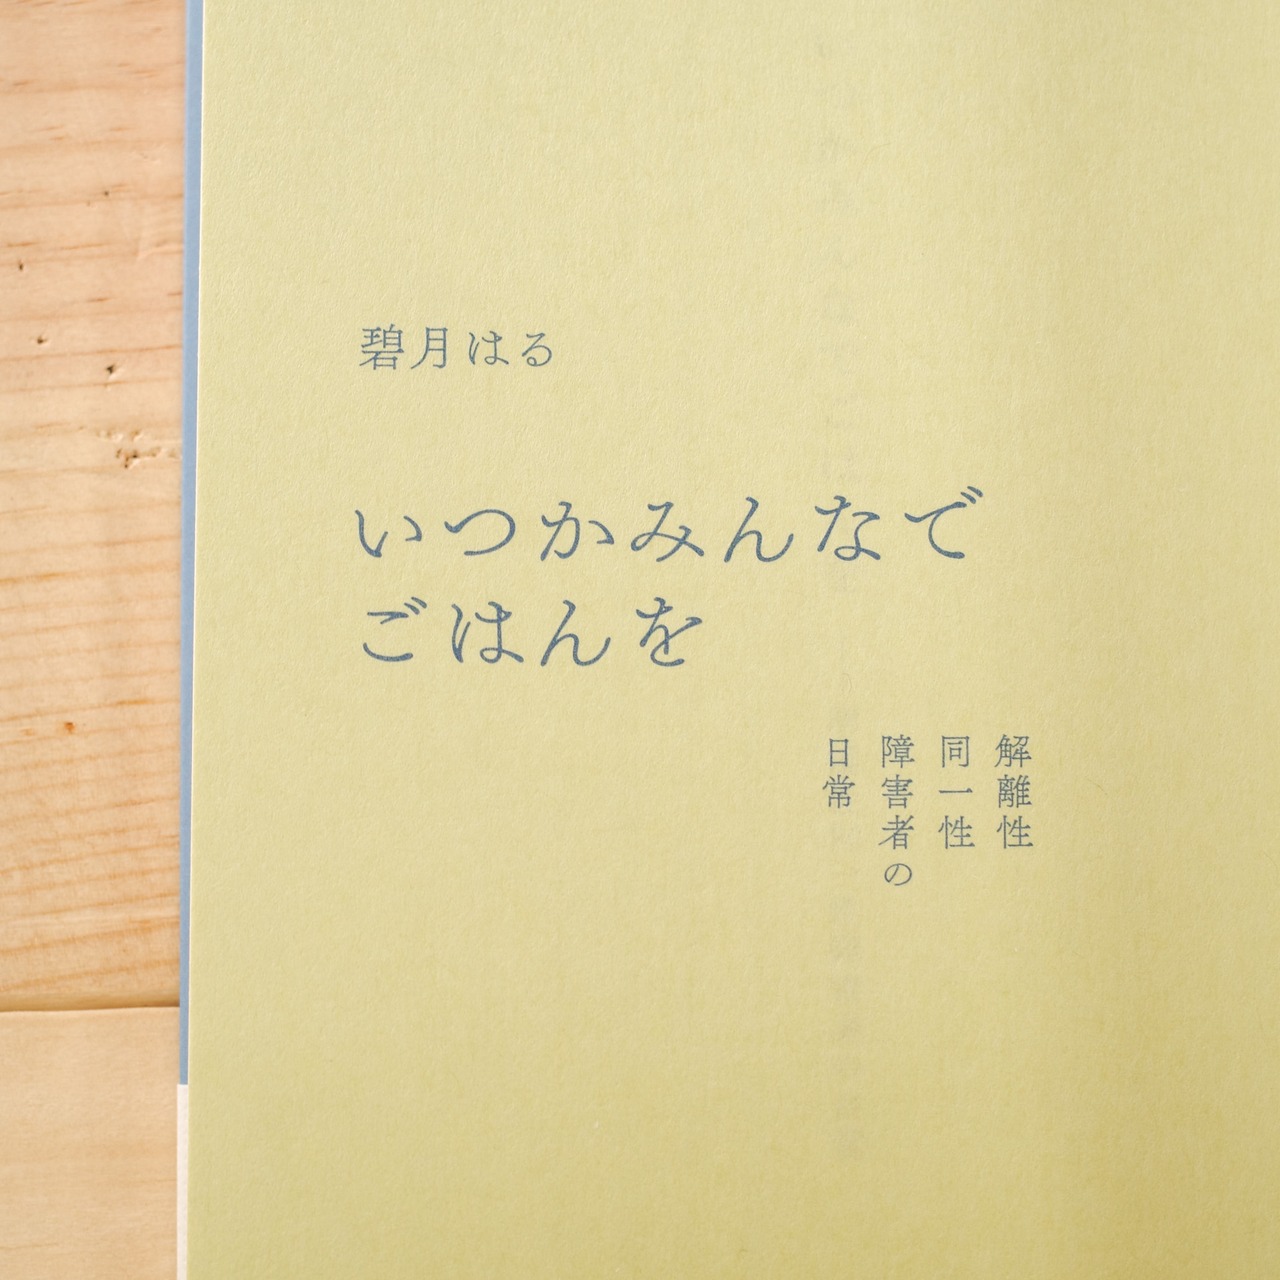 碧月はる
いつかみんなで
ごはんを
解離性
同一性
障害者の
日常